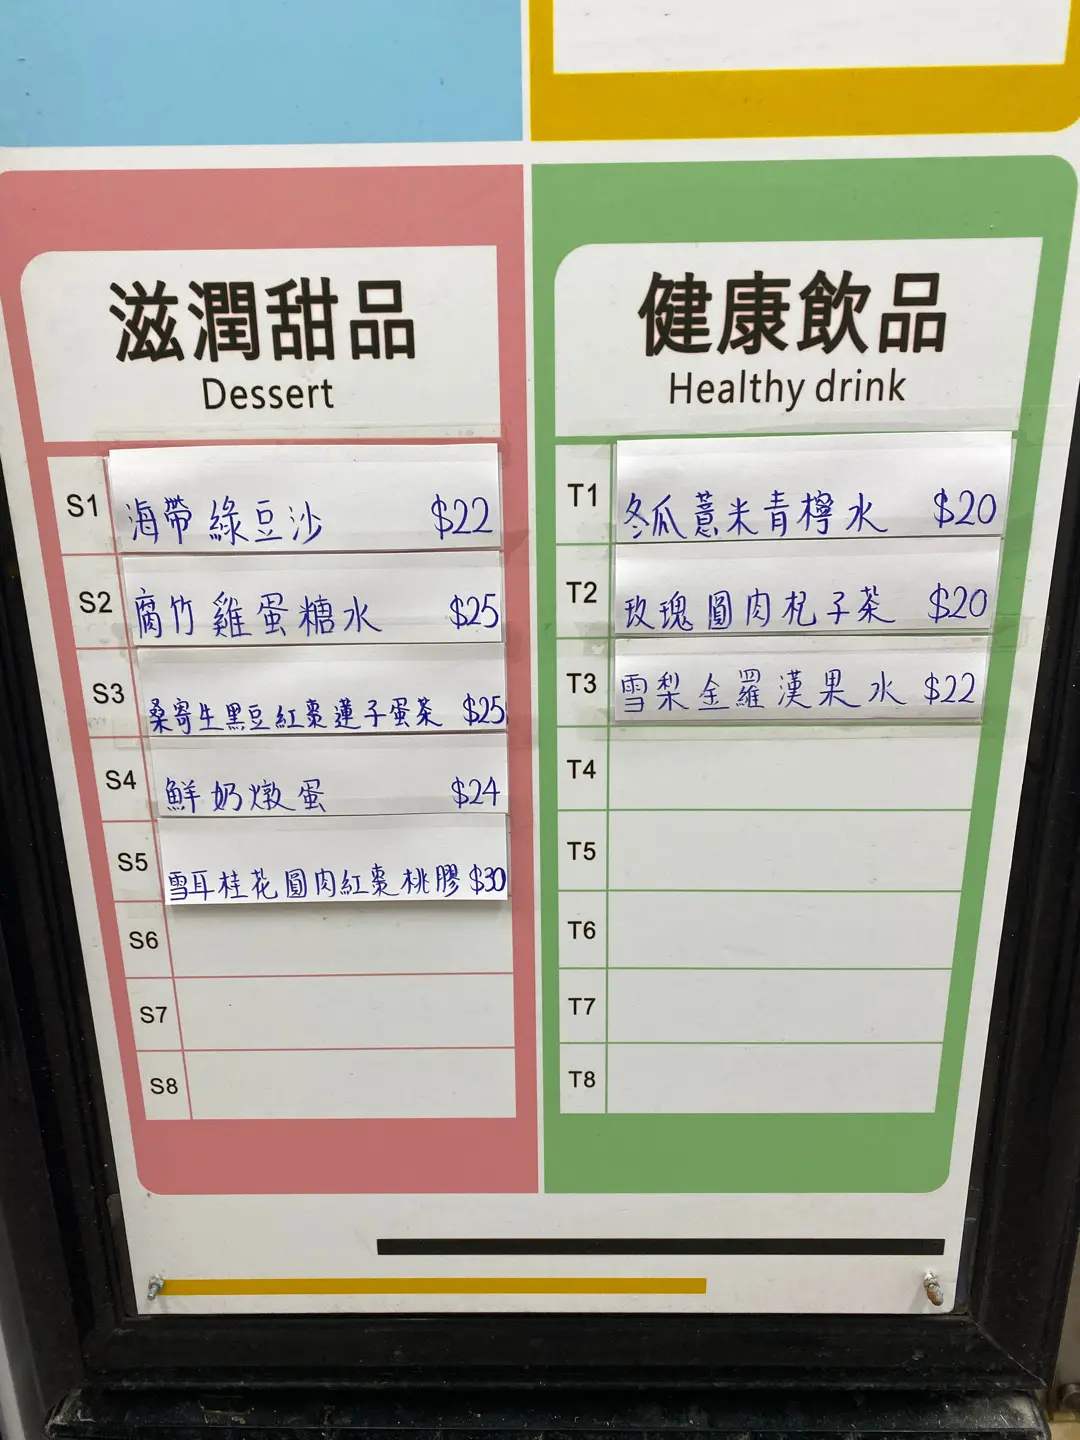 滋潤甜品
Dessert
S1 海帶綠豆沙 $22
S2 腐竹雞蛋糖水 $25
S3 桑寄生黑豆紅棗蓮子蛋茶 $25
S4 鮮奶燉蛋 $24
S5 雪耳桂花圓肉紅棗桃膠 $30
S6
S7
S8
健康飲品
Healthy drink
T1 冬瓜薏米青檸水 $20
T2 玫瑰圓肉杞子茶 $20
T3 雪梨金羅漢果水 $22
T4
T5
T6
T7
T8